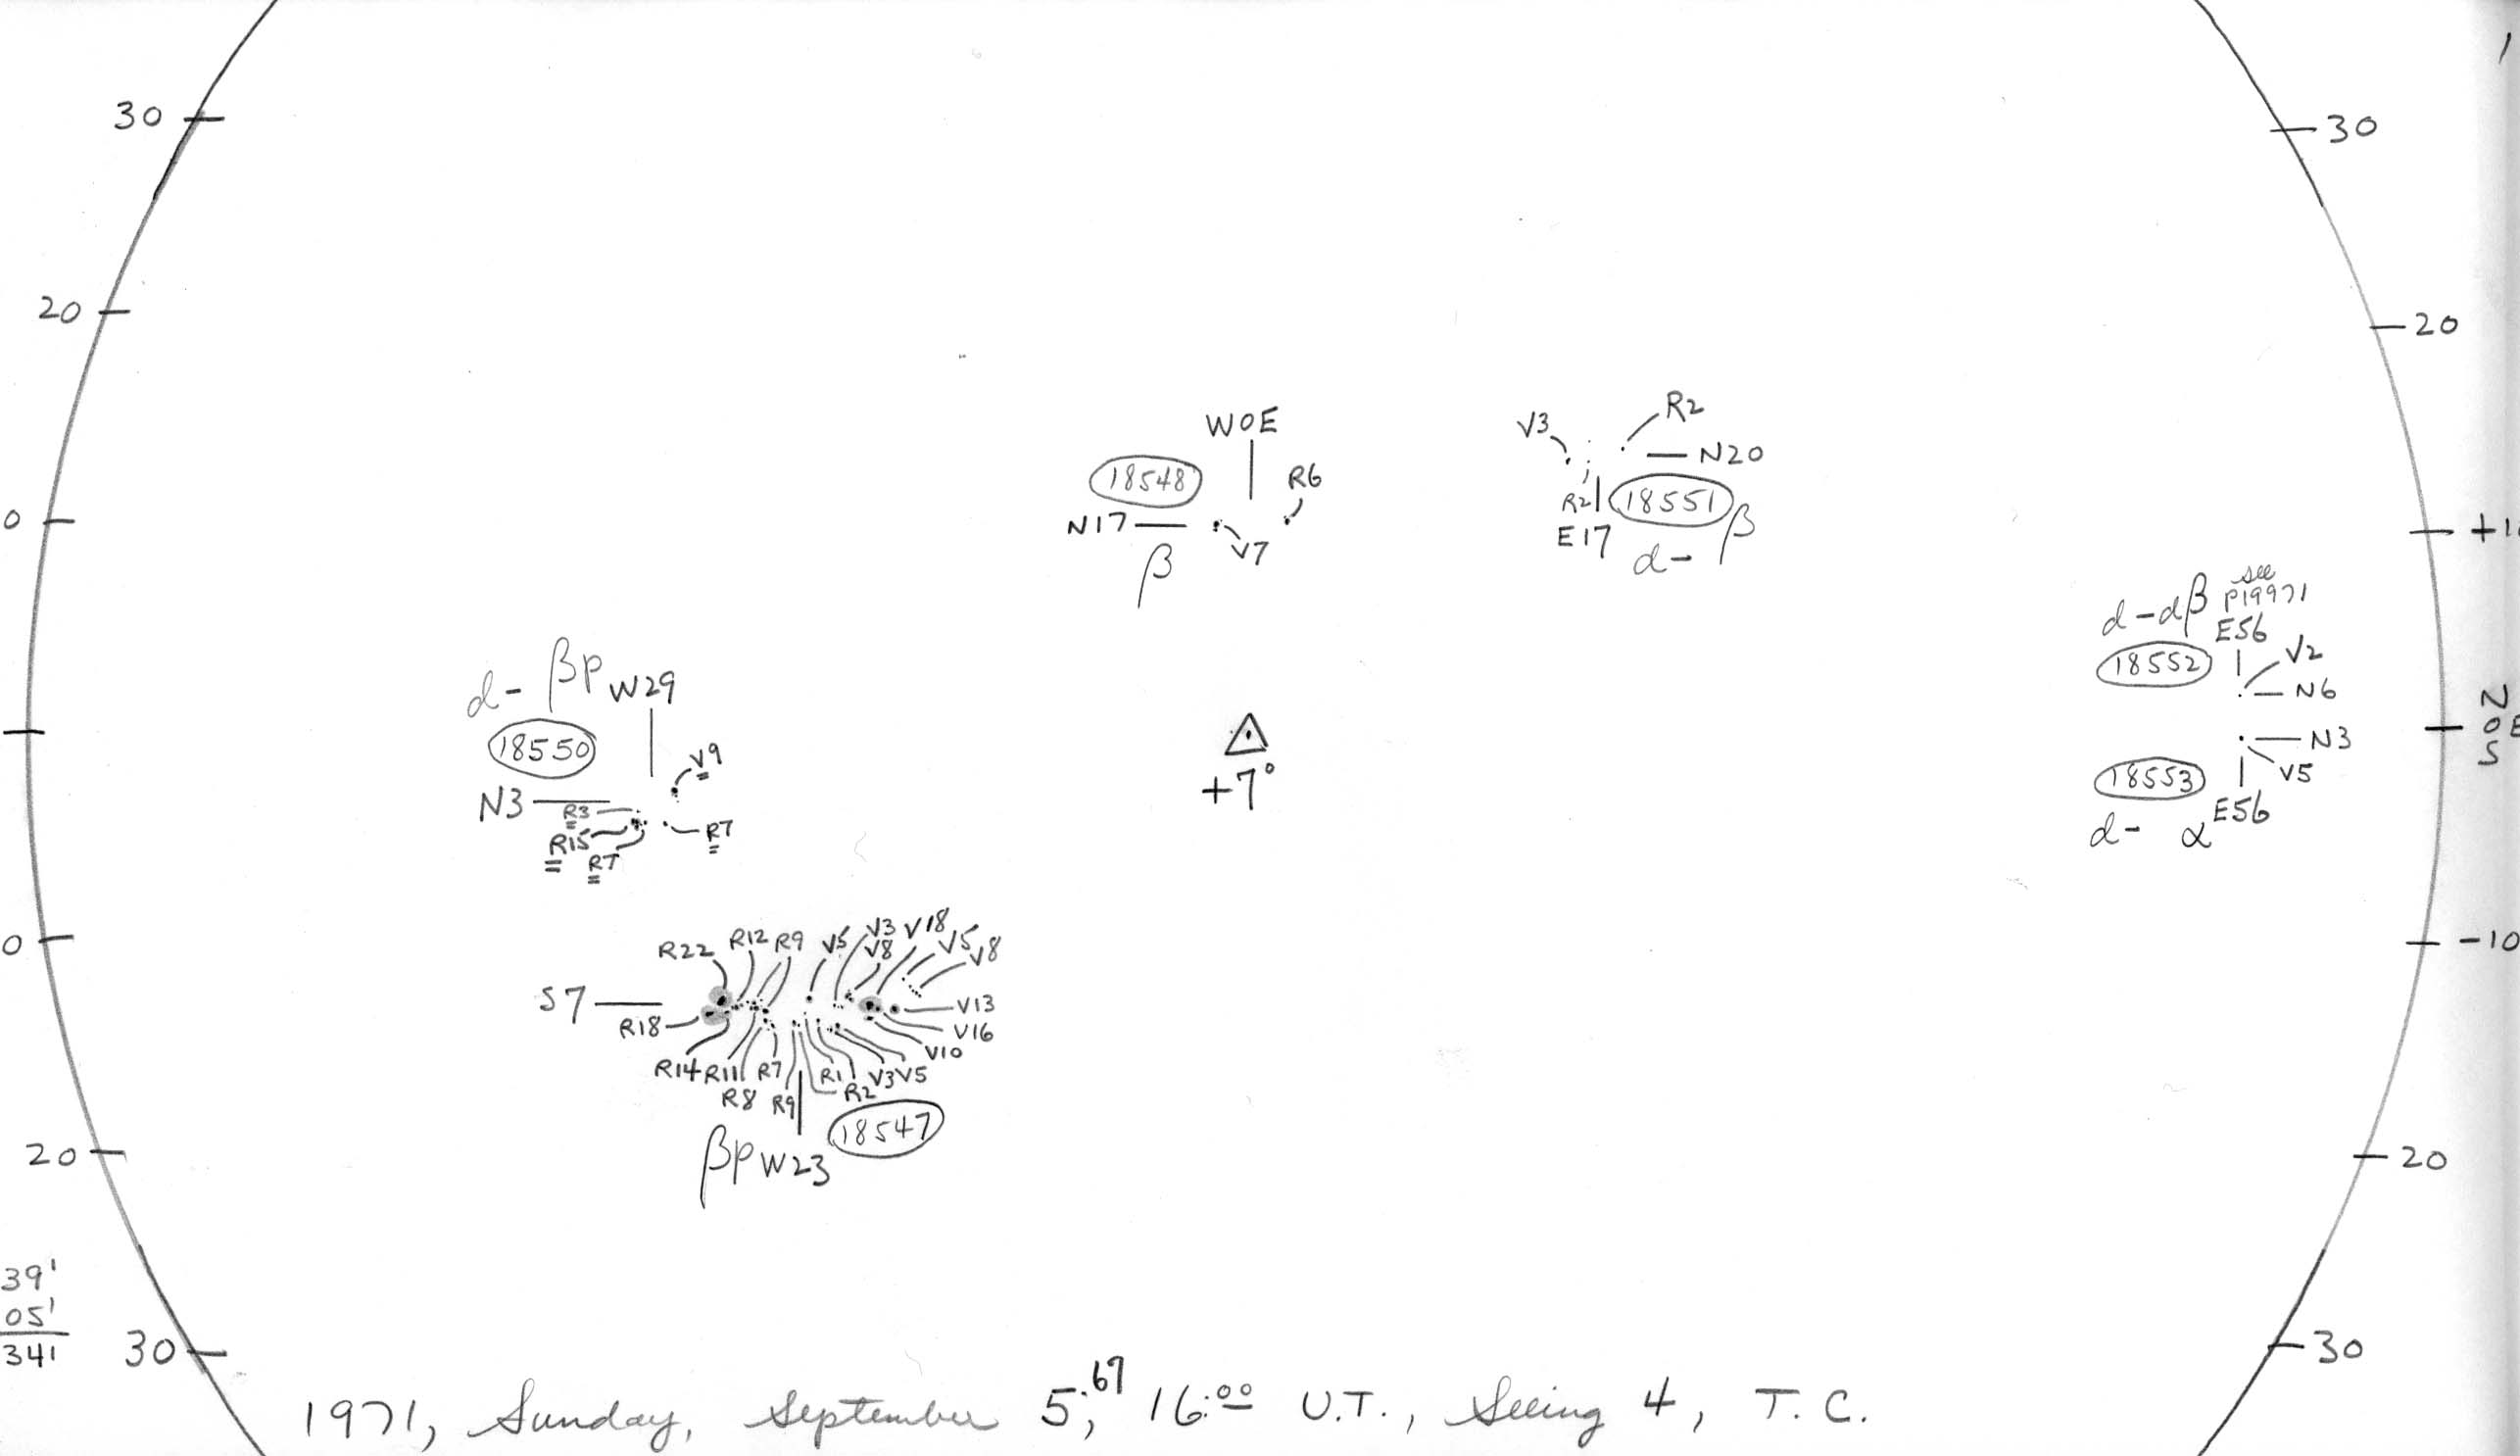 30
30
20
20
WOE
18548
R6
N17
V7
β
V3
R2
N20
R2
18551
E17
d- β
0
+1
d-dβ see
P19971
E56
18552
V2
N6
N
0E
S
N3
18553
V5
E56
d- α
d- βp W29
18550
V9
N3
R3
R15
R7
R7
+7°
0
-10
R22 R12 R9 V5 V3 V18
V8 V5 V8
S7
R18
V13
V16
V10
R14 R11 R7 R1 V3 V5
R8 R9 R2
18547
βp W23
20
20
39'
05'
341
30
30
1971, Sunday, September 5;.67 16:00 U.T., Seeing 4, T.C.